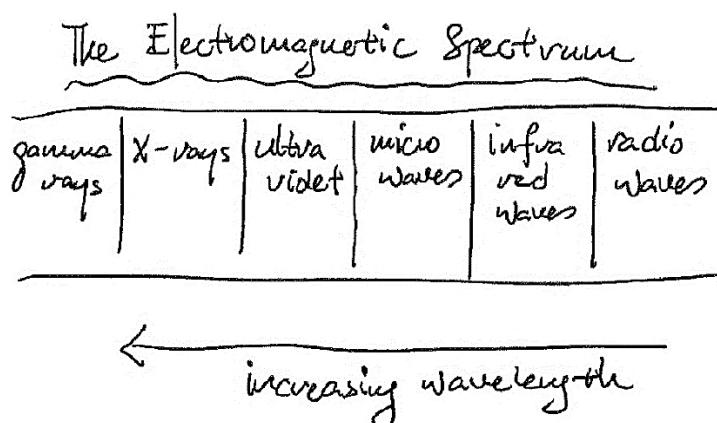 The Electromagnetic Spectrum
gamma rays
X-rays
ultra violet
micro waves
infra red waves
radio waves
increasing wavelength